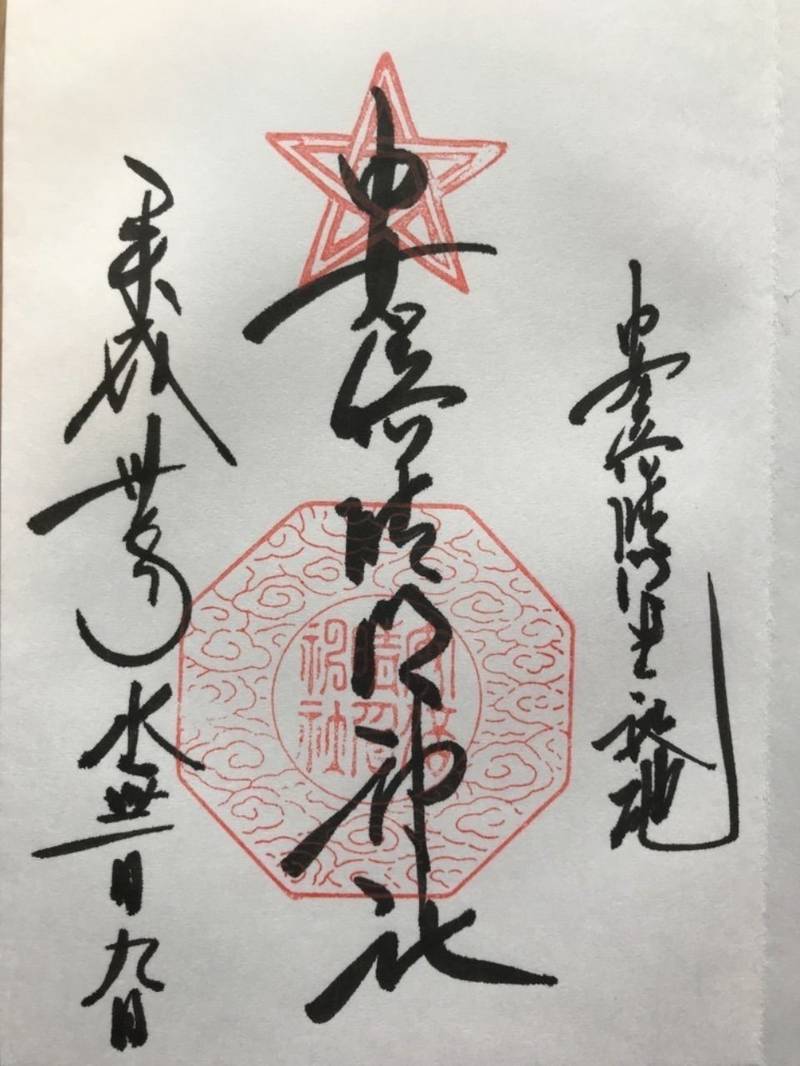 安倍晴明生誕地
安倍晴明神社
平成 水無月九日
安倍
晴明
神社